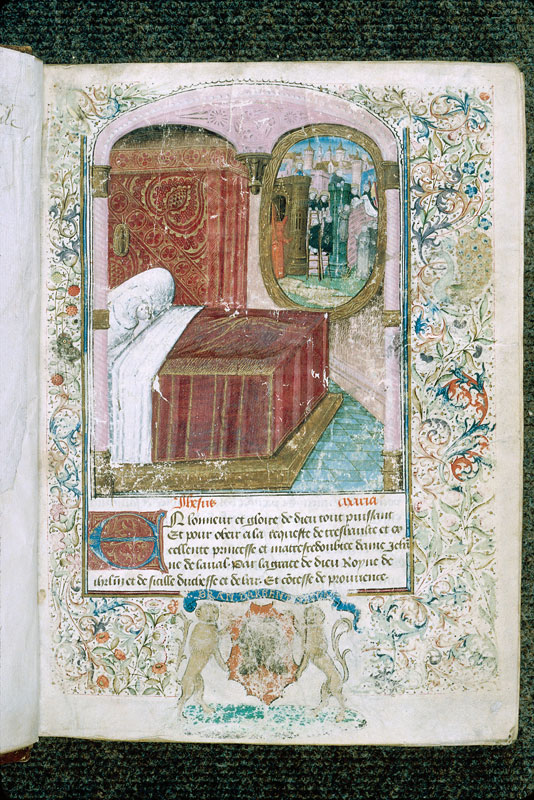 Jhesus maria
EN lonneur et gloire de dieu tout puissant
Et pour obeir a la requeste de treshaulte et ex
cellente princesse et ma tresredoubtee dame Jehã
ne de laual. Par la grace de dieu Royne de
ihrlm et de sicille duchesse et de bar. Et cõtesse de prouuence.